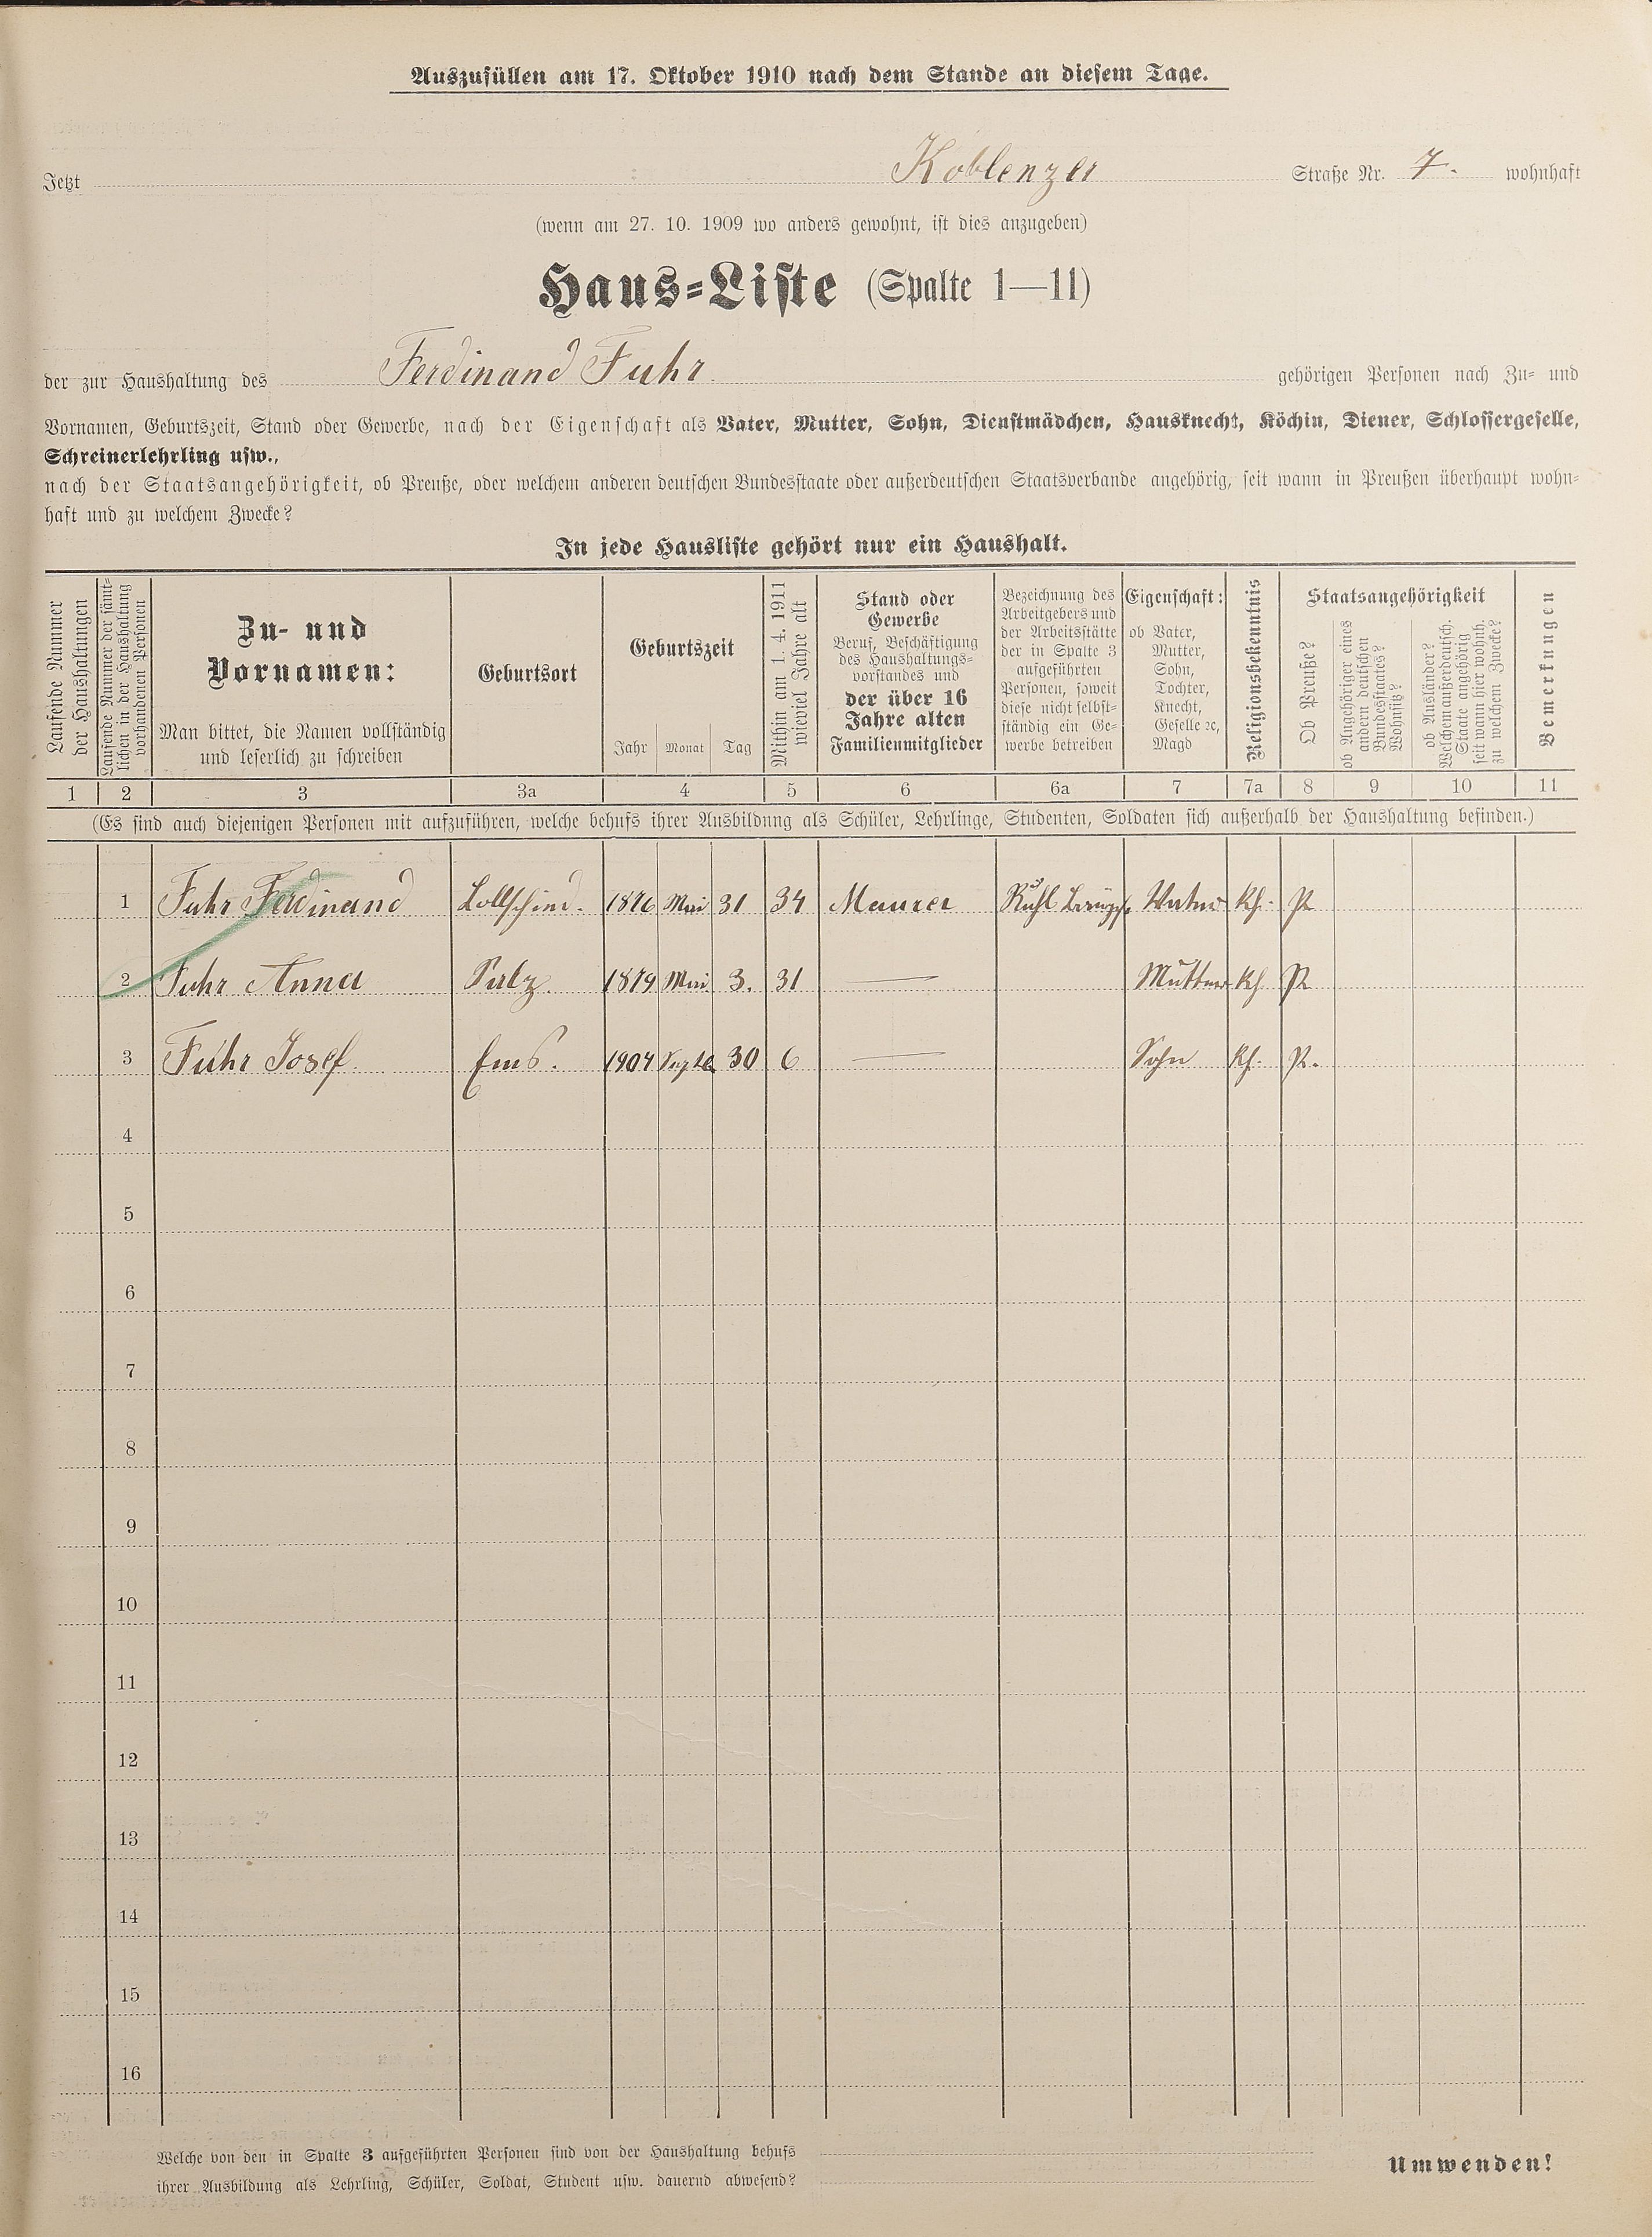 Auszufüllen am 17. Oktober 1910 nach dem Stande an diesem Tage.
Jetzt Koblenzer Straße Nr. 7. wohnhaft
(wenn am 27. 10. 1909 wo anders gewohnt, ist dies anzugeben)
Haus-Liste (Spalte 1—11)
der zur Haushaltung des Ferdinand Fuhr gehörigen Personen nach Zu- und
Vornamen, Geburtszeit, Stand oder Gewerbe, nach der Eigenschaft als Vater, Mutter, Sohn, Dienstmädchen, Hausknecht, Köchin, Diener, Schlossergeselle,
Schreinerlehrling usw.,
nach der Staatsangehörigkeit, ob Preuße, oder welchem anderen deutschen Bundesstaate oder außerdeutschen Staatsverbande angehörig, seit wann in Preußen überhaupt wohn-
haft und zu welchem Zwecke?
In jede Hausliste gehört nur ein Haushalt.
Laufende Nummer
der Haushaltungen
Laufende Nummer der sämt-
lichen in der Haushaltung
vorhandenen Personen
Zu- und
Vornamen:
Man bittet, die Namen vollständig
und leserlich zu schreiben
Geburtsort
Geburtszeit
Jahr Monat Tag
Mithin am 1. 4. 1911
wieviel Jahre alt
Stand oder
Gewerbe
Beruf, Beschäftigung
des Haushaltungs-
vorstandes und
der über 16
Jahre alten
Familienmitglieder
Bezeichnung des
Arbeitgebers und
der Arbeitsstätte
der in Spalte 3
aufgeführten
Personen, soweit
diese nicht selbst-
ständig ein Ge-
werbe betreiben
Eigenschaft:
ob Vater,
Mutter,
Sohn,
Tochter,
Knecht,
Geselle ꝛc,
Magd
Religionsbekenntnis
Staatsangehörigkeit
Ob Preuße?
ob Angehöriger eines
andern deutschen
Bundesstaates?
Wohnsitz?
ob Ausländer?
Welchem außerdeutsch.
Staate angehörig
seit wann hier wohnh.
zu welchem Zwecke?
Bemerkungen
1 2 3 3a 4 5 6 6a 7 7a 8 9 10 11
(Es sind auch diejenigen Personen mit aufzuführen, welche behufs ihrer Ausbildung als Schüler, Lehrlinge, Studenten, Soldaten sich außerhalb der Haushaltung befinden.)
1 Fuhr Ferdinand Lollschied. 1876 Mai 31 34 Maurer Rühl Vater kh. Pr
2 Fuhr Anna Sulz 1879 Mai 3. 31 — Mutter kh Pr
3 Fuhr Josef. Ems. 1904 Septe 30 6 — Sohn kh. Pr.
4
5
6
7
8
9
10
11
12
13
14
15
16
Welche von den in Spalte 3 aufgeführten Personen sind von der Haushaltung behufs
ihrer Ausbildung als Lehrling, Schüler, Soldat, Student usw. dauernd abwesend?
Umwenden!